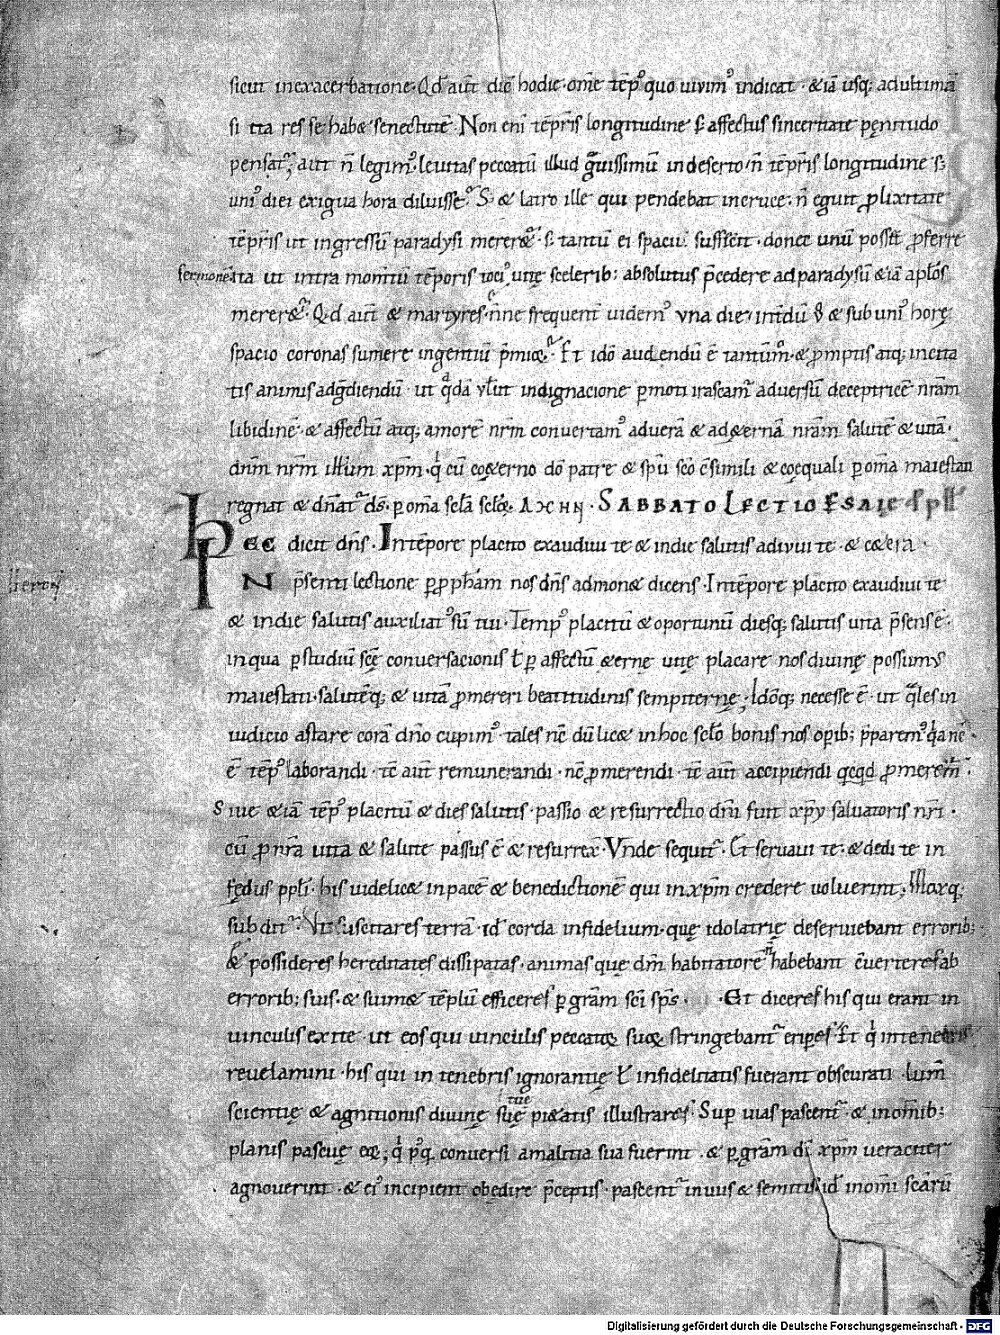 sicut inexacerbatione. Qd̄ aut̄ diē hodie. om̄e tēp᾿ quo uiuim᾿ indicat. &iā usq; adultimā
si ita res se habæ senectutē. Non eni tēpr̄is longitudine s; affectus sinceritate pęnitudo
pensat̄; aut n̄ legim᾿. leuitas peccatū illud grauissimū indeserto. n̄ tēpr̄is longitudine s;
uni᾿ diei exigua hora diluisse. S; & latro ille qui pendebat incruce. n̄ eguit ꝓlixitate
tēpr̄is ut ingressū paradysi mereret̄. s; tantū ei spaciū suffecit. donec unū possit ꝓferre
sermonē
ita ut intra momtū tēporis toci᾿ uitę scelerib; absolutus p̄cedere adparadysū &iā aplōs
mereret̄. Qd̄ aut̄ & martyres. n̄ne frequent̄ uidem᾿ vna die. int̄dū & subuni᾿ horę
spacio coronas sumere ingentiū p̄mioꝝ. Et idō audendū ē tantūm. & ꝓmptis atq; incita
tis animis adgdiendū ut qdā vlut indignacione ꝑmoti irascam̄ aduersū deceptricē nr̄am
libidinē. & affectū atq; amorē nr̄m conuertam᾿ aduerā & ad&ernā nr̄am salutē & uitā.
dn̄m nr̄m ihm xpm̄. q̇ cū co&erno dō patre & spū scō cōsimili & coęquali ꝑ om̄a maiestati
regnat & dn̄at᾿ ds̄. ꝑ om̄a scl̄a scl̄oꝝ. SABBATO LECTIO ESAIE
HEC dicit dn̄s. Intēpore placito exaudiui te & indie salutis adiuui te. & cęt̄era.
IN p̄senti lectione ꝑ ꝓph̄am nos dn̄s admon& dicens. Intēpore placito exaudiui te
& indie salutis auxiliat᾿ sū tui. Temp᾿ placitū & oportunū diesq; salutis uita p̄sens ē.
inqua ꝑ studiū scę̄ conuersacionis ł ꝑ affectū &ernę uitę placare nos diuinę possumus
maiestati. salutēq; & uitā ꝓmereri beatitudinis sempiternę; Idōq; necesse ē. ut q̄les in
iudicio astare corā dn̄o cupim᾿. tales nc̄ dū lic& inhoc sclo bonis nos oꝑib; p̄parem᾿ quia nc̄
ē tēp᾿ laborandi. tc̄ aut̄ remunerandi. nc̄ ꝓmerendi. tc̄ aut̄ accipiendi qcqd ꝓmerem᾿.
Siue &iā tēp᾿ placitū & dies salutis. passio & resurrectio dn̄i fuit xp̄i saluatoris nr̄i.
cū ꝓ nr̄a uita & salute passus ē & resurrex̄. Vnde sequit̄. Et seruaui te. & dedi te in
fędus ppl̄i. his uidelicæ inpacē & benedictionē qui inxpm̄ credere uoluerint. Moxq;
subdit̄. Vt suscitares terrā. id corda infidelium. que idolatrię deseruiebant errorib;
& possideres hereditates dissipatas. animas que dm̄ habitatorē n̄ habebant euerteres ab
errorib; suis. & suimæ tēplū efficeres ꝑ grām sci sp̄s. Et diceres his qui erant in
uinculis exite. ut eos qui uinculis peccatoꝝ suoꝝ stringebant̄ eriꝑes. Et q̇ intenebris
reuelamini. his qui in tenebris ignorantię ł infidelitatis fuerant obscurati. lum̄
tuę
scientię & agnitionis diuinę suę pietatis illustrares. Suꝑ uias pascent̄. & inom̄ib;
planis pascuę eoꝝ; q̇ p᾿q, conuersi amalitia sua fuerint. & ꝑ grām di xpm̄ ueraciter
agnouerint. & ei᾿ incipient obędire p̄ceptis. pascent̄ inuiis & semitis. id inom̄i scārū
Digitalisierung gefördert durch die Deutsche Forschungsgemeinschaft - DFG